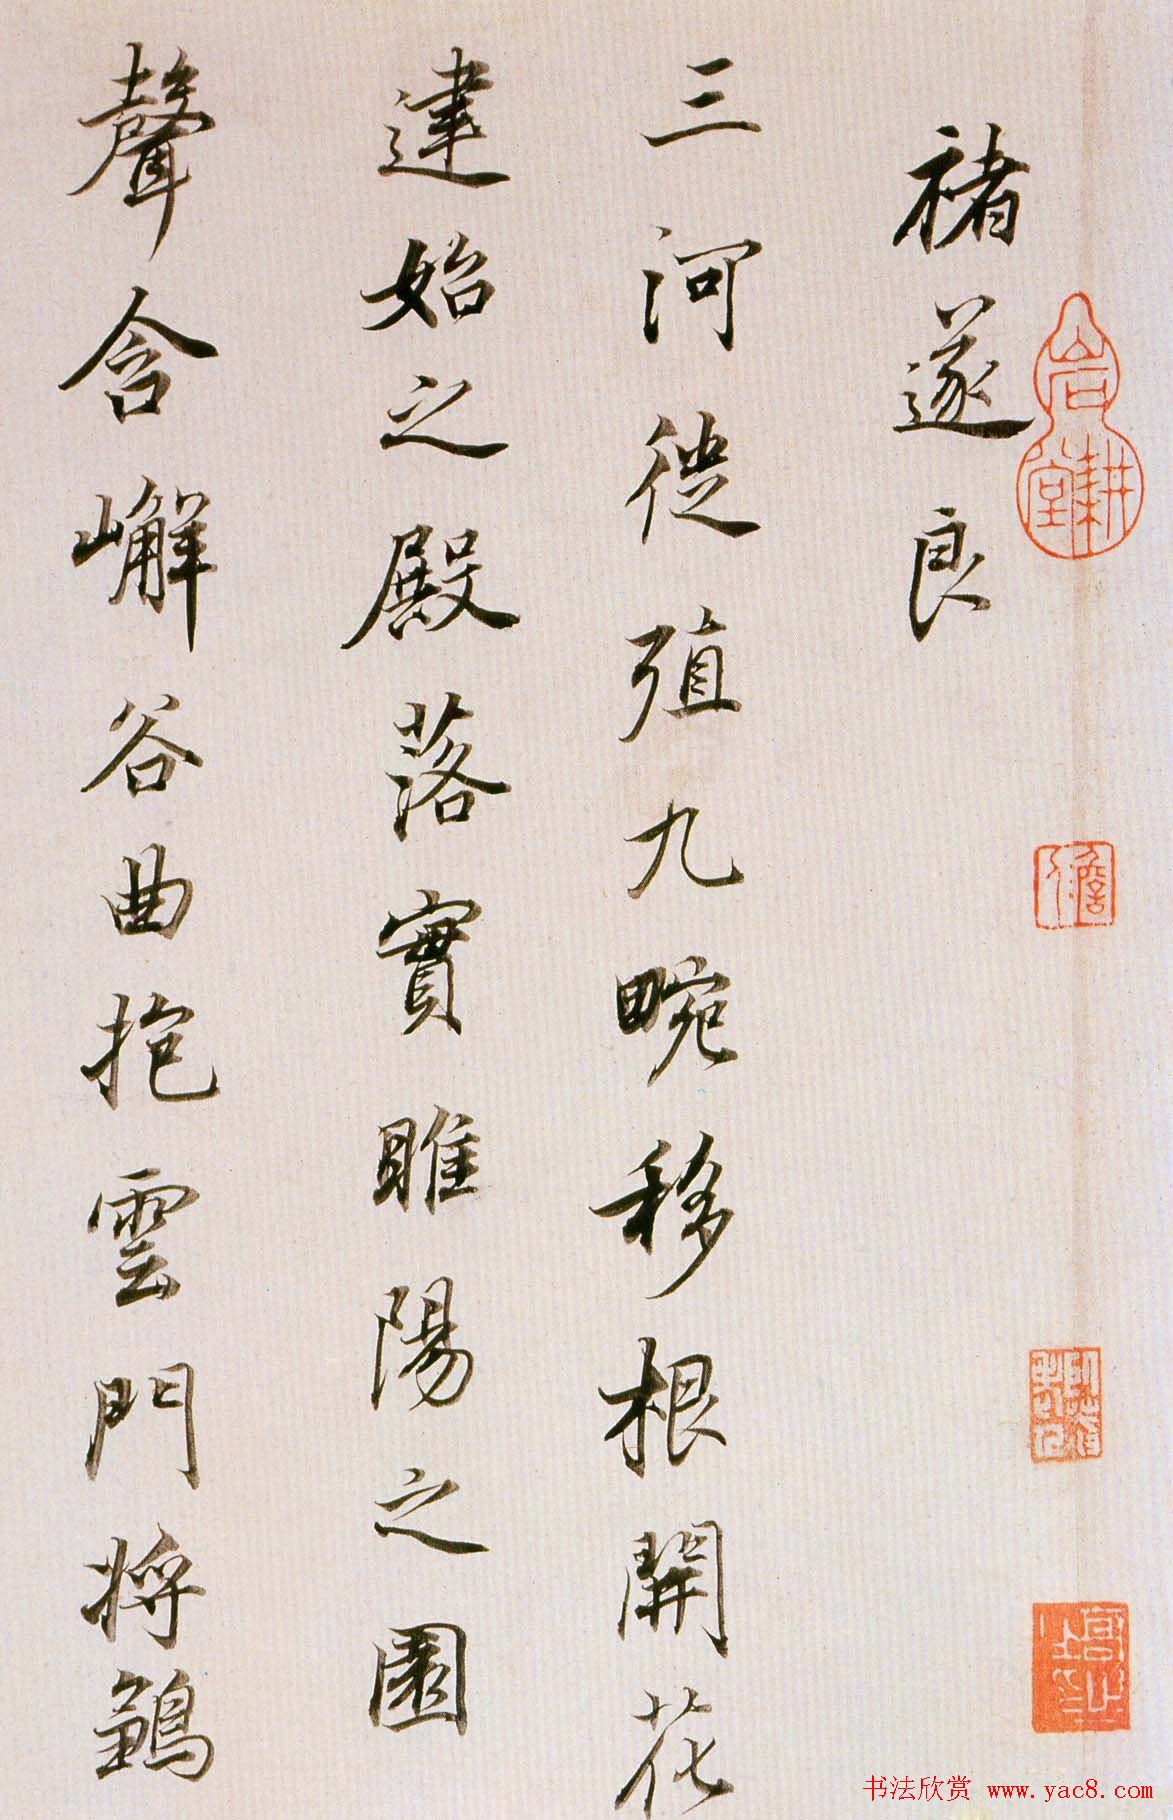 褚遂良
三河徙殖九畹移根開花
建始之殿落實睢陽之園
聲含嶰谷曲抱雲門將鶵
岩耕堂
书法欣赏 www.yac8.com